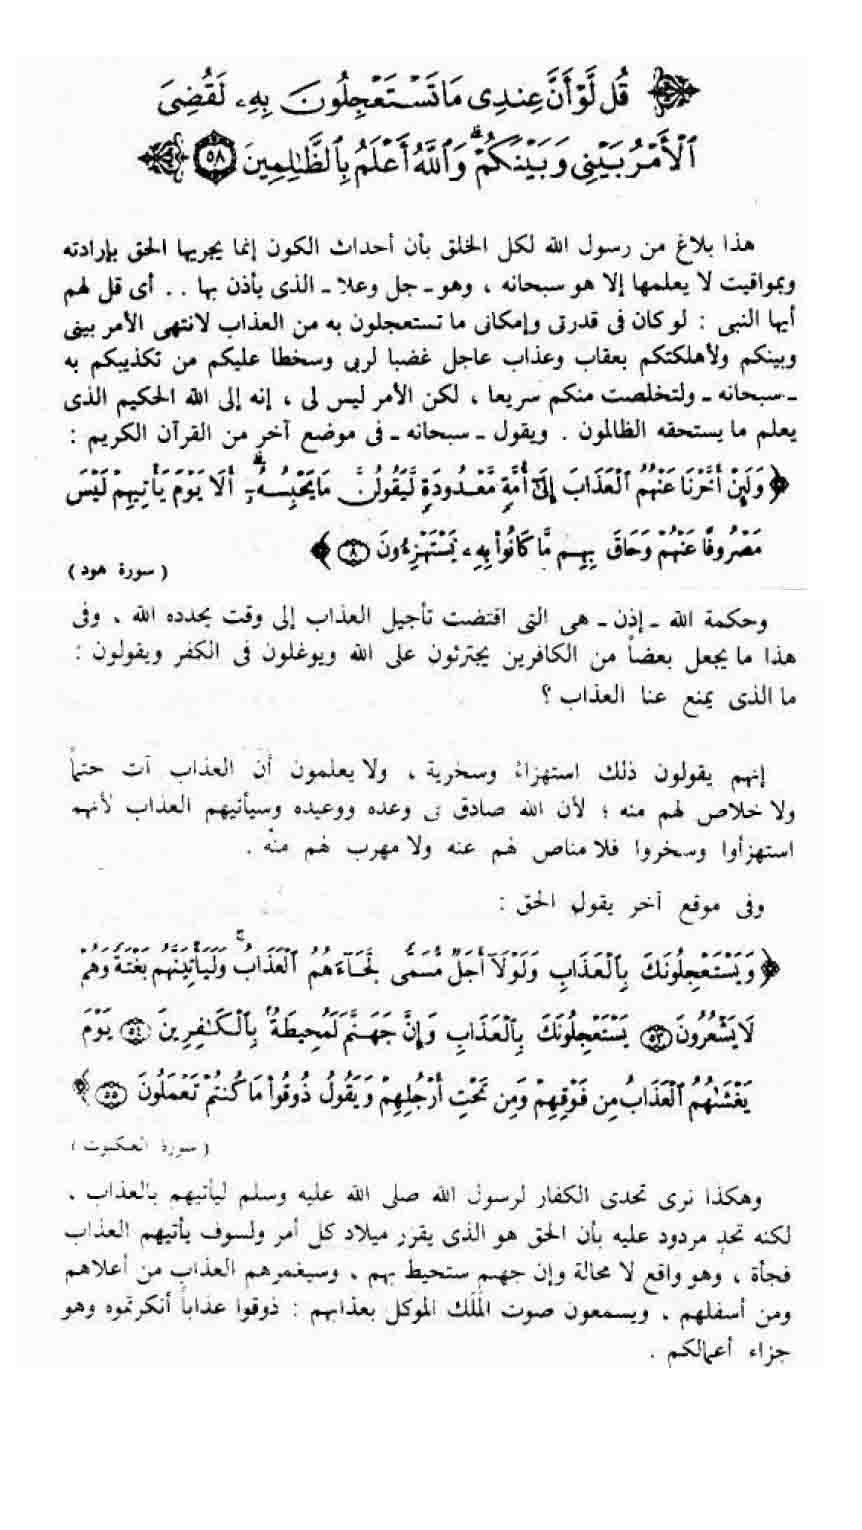 ﴿ قُل لَّوْ أَنَّ عِندِى مَا تَسْتَعْجِلُونَ بِهِۦ لَقُضِىَ
ٱلْأَمْرُ بَيْنِى وَبَيْنَكُمْ ۗ وَٱللَّهُ أَعْلَمُ بِٱلظَّـٰلِمِينَ ٥٨ ﴾
هذا بلاغ من رسول الله لكل الخلق بأن أحداث الكون إنما يجريها الحق بإرادته
وبمواقيت لا يعلمها إلا هو سبحانه ، وهو ـ جل وعلا ـ الذى يأذن بها . . أى قل لهم
أيها النبى : لو كان فى قدرتى وإمكانى ما تستعجلون به من العذاب لانتهى الأمر بينى
وبينكم ولأهلكتكم بعقاب وعذاب عاجل غضبا لربى وسخطا عليكم من تكذيبكم به
ـ سبحانه ـ ولتخلصت منكم سريعا ، لكن الأمر ليس لى ، إنه إلى الله الحكيم الذى
يعلم ما يستحقه الظالمون . ويقول ـ سبحانه ـ فى موضع آخر من القرآن الكريم :
﴿ وَلَئِنْ أَخَّرْنَا عَنْهُمُ ٱلْعَذَابَ إِلَىٰٓ أُمَّةٍ مَّعْدُودَةٍ لَّيَقُولُنَّ مَا يَحْبِسُهُۥٓ ۗ أَلَا يَوْمَ يَأْتِيهِمْ لَيْسَ
مَصْرُوفًا عَنْهُمْ وَحَاقَ بِهِم مَّا كَانُوا۟ بِهِۦ يَسْتَهْزِءُونَ ٨ ﴾
( سورة هود )
وحكمة الله ـ إذن ـ هى التى اقتضت تأجيل العذاب إلى وقت يحدده الله ، وفى
هذا ما يجعل بعضاً من الكافرين يجترئون على الله ويوغلون فى الكفر ويقولون :
ما الذى يمنع عنا العذاب ؟
إنهم يقولون ذلك استهزاءً وسخرية ، ولا يعلمون أن العذاب آت حتماً
ولا خلاص لهم منه ؛ لأن الله صادق فى وعده ووعيده وسيأتيهم العذاب لأنهم
استهزأوا وسخروا فلا مناص لهم عنه ولا مهرب لهم منه .
وفى موقع آخر يقول الحق :
﴿ وَيَسْتَعْجِلُونَكَ بِٱلْعَذَابِ وَلَوْلَآ أَجَلٌ مُّسَمًّى لَّجَآءَهُمُ ٱلْعَذَابُ ۚ وَلَيَأْتِيَنَّهُم بَغْتَةً وَهُمْ
لَا يَشْعُرُونَ ٥٣ يَسْتَعْجِلُونَكَ بِٱلْعَذَابِ وَإِنَّ جَهَنَّمَ لَمُحِيطَةٌۢ بِٱلْكَـٰفِرِينَ ٥٤ يَوْمَ
يَغْشَىٰهُمُ ٱلْعَذَابُ مِن فَوْقِهِمْ وَمِن تَحْتِ أَرْجُلِهِمْ وَيَقُولُ ذُوقُوا۟ مَا كُنتُمْ تَعْمَلُونَ ٥٥ ﴾
( سورة العنكبوت )
وهكذا نرى تحدى الكفار لرسول الله صلى الله عليه وسلم ليأتيهم بالعذاب ،
لكنه تحدٍ مردود عليه بأن الحق هو الذى يقرر ميلاد كل أمر ولسوف يأتيهم العذاب
فجأة ، وهو واقع لا محالة وإن جهنم ستحيط بهم ، وسيغمرهم العذاب من أعلاهم
ومن أسفلهم ، ويسمعون صوت المَلَك الموكل بعذابهم : ذوقوا عذاباً أنكرتموه وهو
جزاء أعمالكم .